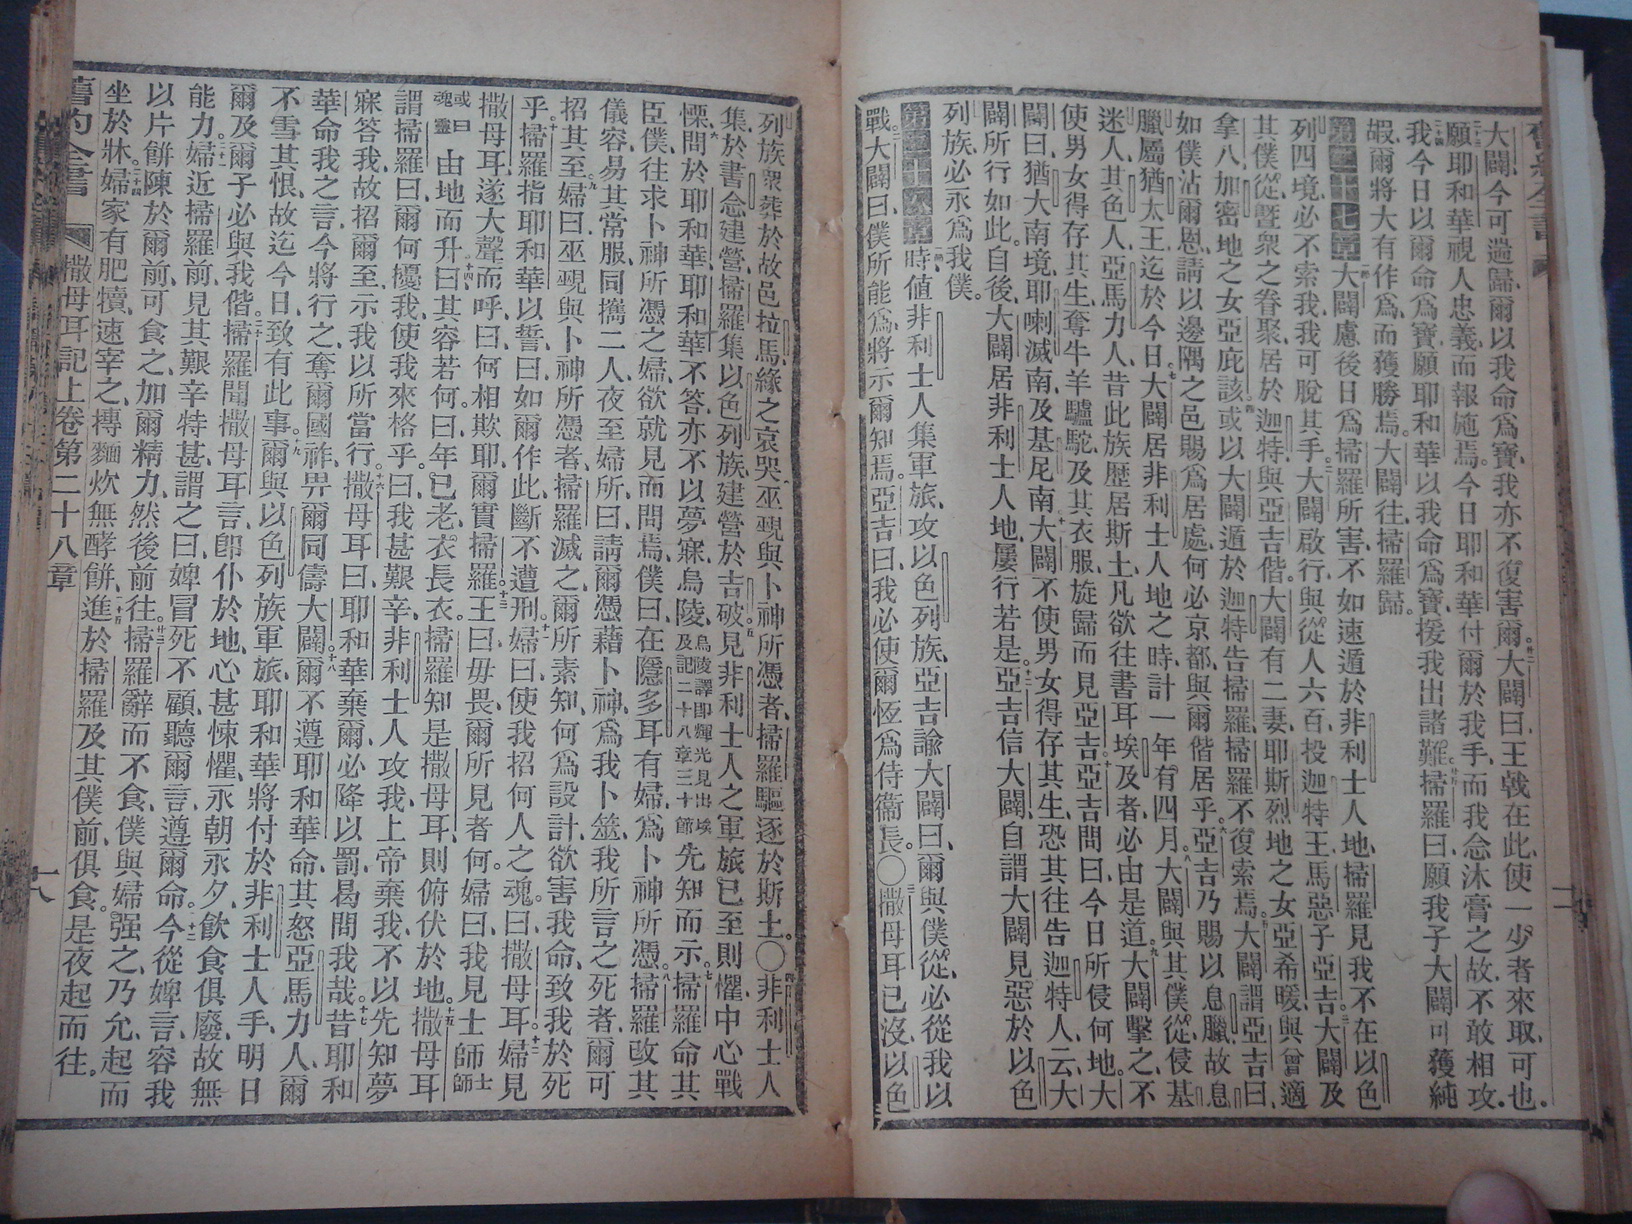 大闢、今可遄歸、爾以我命爲寶、我亦不復害爾、廿二大闢曰、王戟在此、使一少者來取可也、
廿三願耶和華視人忠義、而報施焉、今日耶和華付爾於我手、而我念沐膏之故、不敢相攻、
廿四我今日以爾命爲寶、願耶和華以我命爲寶、援我出諸難、廿五掃羅曰、願我子大闢可獲純
嘏、爾將大有作爲、而獲勝焉、大闢往、掃羅歸。
第二十七章 一節大闢慮後日爲掃羅所害、不如速遁於非利士人地、掃羅見我不在以色
列四境、必不索我、我可脫其手、二大闢啟行、與從人六百、投迦特王馬惡子亞吉、三大闢及
其僕從、曁衆之眷聚、居於迦特、與亞吉偕、大闢有二妻、耶斯烈地之女亞希暖、與曾適
拿八、加密地之女亞庇該、四或以大闢遁於迦特告掃羅、掃羅不復索焉、五大闢謂亞吉曰、
如僕沾爾恩、請以邊隅之邑賜爲居處、何必京都、與爾偕居乎、六亞吉乃賜以息臘、故息
臘屬猶太王、迄於今日、七大闢居非利士人地之時、計一年有四月、八大闢與其僕從侵基
述人、其色人、亞馬力人、昔此族歷居斯土、凡欲往書耳埃及者、必由是道、九大闢擊之、不
使男女得存其生、奪牛羊驢駝及其衣服、旋歸而見亞吉、十亞吉問曰、今日所侵何地、大
闢曰、猶大南境、耶喇滅南、及基尼南、十一大闢不使男女得存其生、恐其往告迦特人、云、大
闢所行如此、自後大闢居非利士人地、屢行若是、十二亞吉信大闢、自謂大闢見惡於以色
列族、必永爲我僕。
第二十八章 一節時値非利士人集軍旅、攻以色列族、亞吉諭大闢曰、爾與僕從、必從我以
戰、二大闢曰、僕所能爲、將示爾知焉、亞吉曰、我必使爾恆爲侍衞長。〇三撒母耳已沒、以色
列族衆葬於故邑拉馬、緣之哀哭、巫覡與卜神所憑者、掃羅驅逐於斯土。〇四非利士人
集於書念建營、掃羅集以色列族、建營於吉破、五見非利士人之軍旅已至、則懼、中心戰
慄、六問於耶和華、耶和華不答、亦不以夢寐、烏陵、烏陵譯即輝光見出埃及記二十八章三十節先知而示、七掃羅命其
臣僕往求卜神所憑之婦、欲就見而問焉、僕曰、在隱多耳有婦、爲卜神所憑、八掃羅改其
儀容、易其常服、同攜二人、夜至婦所、曰、請爾憑藉卜神、爲我卜筮、我所言之死者、爾可
招其至、九婦曰、巫覡與卜神所憑者、掃羅滅之、爾所素知、何爲設計、欲害我命、致我於死
乎、十掃羅指耶和華以誓曰、如爾作此、斷不遭刑、十一婦曰、使我招何人之魂、曰、撒母耳、十二婦見
撒母耳、遂大聲而呼、曰、何相欺耶、爾實掃羅、十三王曰、毋畏、爾所見者何、婦曰、我見士師士師
或曰靈魂由地而升、十四曰、其容若何、曰、年已老、衣長衣、掃羅知是撒母耳、則俯伏於地、十五撒母耳
謂掃羅曰、爾何擾我、使我來格乎、曰、我甚艱辛、非利士人攻我、上帝棄我、不以先知夢
寐答我、故招爾至、示我以所當行、十六撒母耳曰、耶和華棄爾、必降以罰、曷問我哉、十七昔耶和
華命我之言、今將行之、奪爾國祚、畀爾同儔大闢、十八爾不遵耶和華命、其怒亞馬力人、爾
不雪其恨、故迄今日、致有此事、十九爾與以色列族軍旅、耶和華將付於非利士人手、明日
爾及爾子、必與我偕、二十掃羅聞撒母耳言、卽仆於地、心甚悚懼、永朝永夕、飲食俱廢、故無
能力、二十一婦近掃羅前、見其艱辛特甚、謂之曰、婢冒死不顧、聽爾言、遵爾命、二十二今從婢言、容我
以片餅陳於爾前、可食之、加爾精力、然後前往、廿三掃羅辭而不食、僕與婦强之、乃允、起而
坐於牀、二十四婦家有肥犢、速宰之、摶麵炊無酵餅、二十五進於掃羅及其僕前、俱食、是夜起而往。
舊約全書 撒母耳記上卷第二十八章 十八